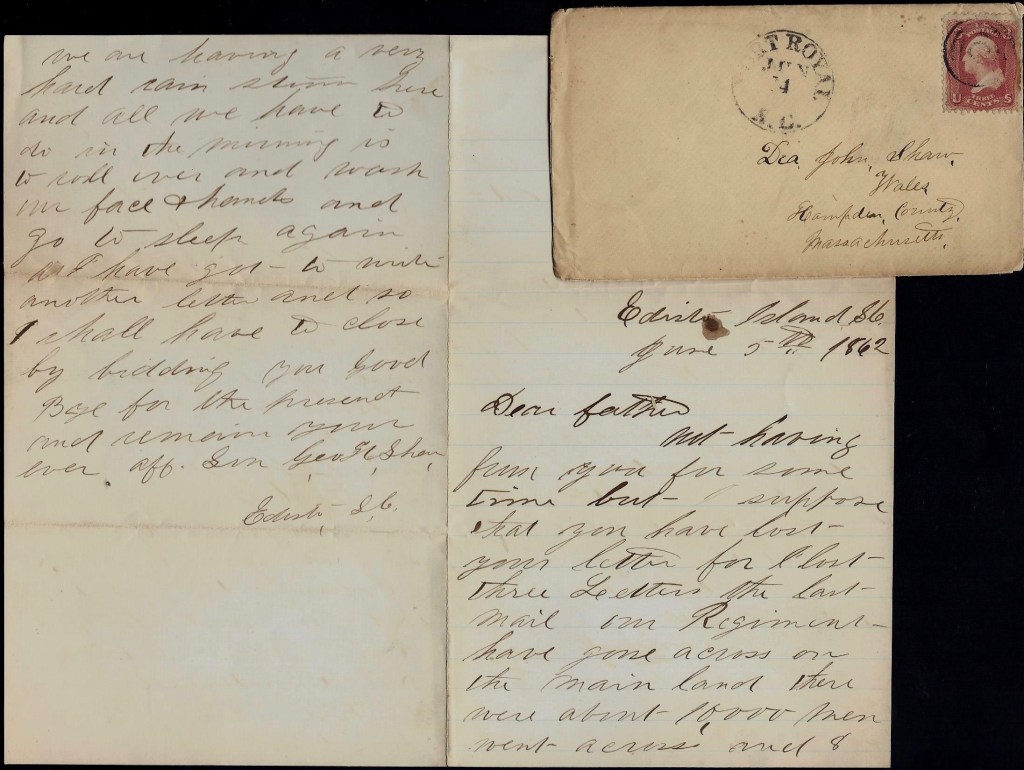 PORT ROYAL
JUN
S.C.
U.S. POSTAGE
THREE
CENTS
U S
Dea John Shaw.
Wales
Hampden County,
Massachusetts.
Edisto Island S.C.
June 5th 1862
Dear father
not having
from you for some
time but I suppose
that you have lost
your letter for I lost
three Letters the last
mail our Regiment
have gone across on
the main land there
were about 10,000 men
went across and 8
we are having a very
hard rain storm here
and all we have to
do in the morning is
to roll over and wash
our face & hands and
go to sleep again
as I have got to write
another letter and so
I shall have to close
by bidding you Good
Bye for the present
and remain your
ever aff. Son Geo. H. Shaw
Edisto, S.C.